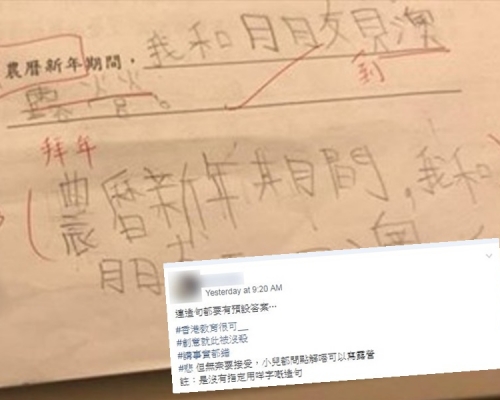 農曆新年期間，我和
到
露營。
拜年
農曆新年期間，我和
Yesterday at 9:20 AM
連造句都要有預設答案…
#香港教育很可__
#創意就此被沒殺
#講事實都錯
#悲 但無奈要接受，小兒都問點解唔可以寫露營
註：是沒有指定用咩字嘅造句